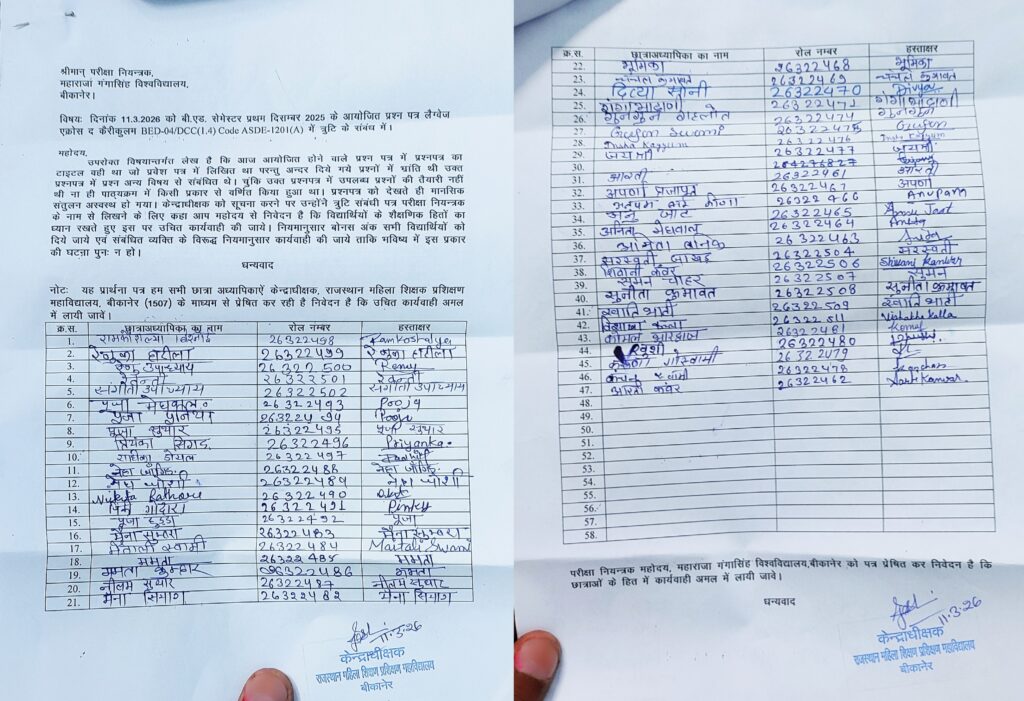 श्रीमान् परीक्षा नियन्त्रक,
महाराजा गंगासिंह विश्वविद्यालय,
बीकानेर।
विषयः दिनांक 11.3.2026 को बी.एड. सेमेस्टर प्रथम दिसम्बर 2025 के आयोजित प्रश्न पत्र लैंग्वेज
एक्रोस द कैरीकुलम BED-04/DCC(1.4) Code ASDE-1201(A) में त्रुटि के संबंध में।
महोदय,
उपरोक्त विषयान्तर्गत लेख है कि आज आयोजित होने वाले प्रश्न पत्र में प्रश्नपत्र का
टाइटल वही था जो प्रवेश पत्र में लिखित था परन्तु अन्दर दिये गये प्रश्नों में भ्रांति थी उक्त
प्रश्नपत्र में प्रश्न अन्य विषय से संबंधित थे। चुकि उक्त प्रश्नपत्र में उपलब्ध प्रश्नों की तैयारी नहीं
थी ना ही पाठ्यक्रम में किसी प्रकार से वर्णित किया हुआ था। प्रश्नपत्र को देखते ही मानसिक
संतुलन अस्वस्थ हो गया। केन्द्राधीक्षक को सूचना करने पर उन्होंने त्रुटि संबंधी पत्र परीक्षा नियन्त्रक
के नाम से लिखने के लिए कहा आप महोदय से निवेदन है कि विद्यार्थियों के शैक्षणिक हितों का
ध्यान रखते हुए इस पर उचित कार्यवाही की जाये। नियमानुसार बोनस अंक सभी विद्यार्थियों को
दिये जाये एवं संबंधित व्यक्ति के विरूद्ध नियमानुसार कार्यवाही की जाये ताकि भविष्य में इस प्रकार
की घटना पुनः न हो।
धन्यवाद
नोटः यह प्रार्थना पत्र हम सभी छात्रा अध्यापिकाऐं केन्द्राधीक्षक, राजस्थान महिला शिक्षक प्रशिक्षण
महाविद्यालय, बीकानेर (1507) के माध्यम से प्रेषित कर रही है निवेदन है कि उचित कार्यवाही अमल
में लायी जावें।
क्र.स. छात्राअध्यापिका का नाम रोल नम्बर हस्ताक्षर
1. 26322498 Ramkoshalya
2. रेणुका हटीला 26322499 रेणुका हटीला
3. रेनु उपाध्याय 26322500 Renu
4. रेवन्ती 26322501 रेवन्ती
5. संगीता उपाध्याय 26322502 संगीता उपाध्याय
6. पूजा मेघवाल 26322493 Pooja
7. पूजा पुनिया 26322494 Pooja
8. पूजा सुथार 26322495 पूजा सुथार
9. प्रियंका सियाग 26322496 Priyanka
10. 26322497
11. नेहा जाँगिड़ 26322488 नेहा जाँगिड़
12. नेहा जोशी 26322489 नेहा जोशी
13. Nikita Rathore 26322490
14. पिंकी गोदारा 26322491 Pinky
15. पूजा 26322492 पूजा
16. मैना 26322483 मैना
17. मैताली स्वामी 26322484 Maitali Swami
18. ममता 26322485 ममता
19. ममता कुम्हार 26322486 ममता
20. नीलम सुथार 26322487 नीलम सुथार
21. मैना सियाग 26322482 मैना सियाग
11-3-26
केन्द्राधीक्षक
राजस्थान महिला शिक्षण प्रशिक्षण महाविद्यालय
बीकानेर
क्र.स. छात्राअध्यापिका का नाम रोल नम्बर हस्ताक्षर
22. भूमिका 26322468 भूमिका
23. 26322469
24. दिव्या सोनी 26322470 Divya
25. गंगा भादाणी 26322471 गंगा भादाणी
26. गुनगुन गहलोत 26322474 गुनगुन
27. Gunjan Swami 26322475 Gunjan
28. 26322476
29. जयश्री 26322477 जयश्री
30.
31. आरती 26322461 आरती
32. अपर्णा प्रजापत 26322467 अपर्णा
33. 26322466 Anupam
34. अनु जाट 26322465 Annu Jaat
35. अनिता मेघवाल 26322464 Anita
36. 26322463
37. सरस्वती जाखड़ 26322504 सरस्वती
38. शिवानी कंवर 26322506 Shivani Kanwar
39. सुमन चौहर 26322507 सुमन
40. सुनीता कुमावत 26322508 सुनीता कुमावत
41. स्वाति भाटी 26322509 स्वाति भाटी
42. विशाखा कल्ला 26322511 Vishakha Kalla
43. कोमल 26322481 Komal
44. खुशी 26322480
45. गोस्वामी 26322479
46. 26322478
47. आरती कंवर 26322462 Aarti Kanwar
48.
49.
50.
51.
52.
53.
54.
55.
56.
57.
58.
परीक्षा नियन्त्रक महोदय, महाराजा गंगासिंह विश्वविद्यालय,बीकानेर को पत्र प्रेषित कर निवेदन है कि
छात्राओं के हित में कार्यवाही अमल में लायी जावें।
धन्यवाद
11-3-26
केन्द्राधीक्षक
राजस्थान महिला शिक्षण प्रशिक्षण महाविद्यालय
बीकानेर